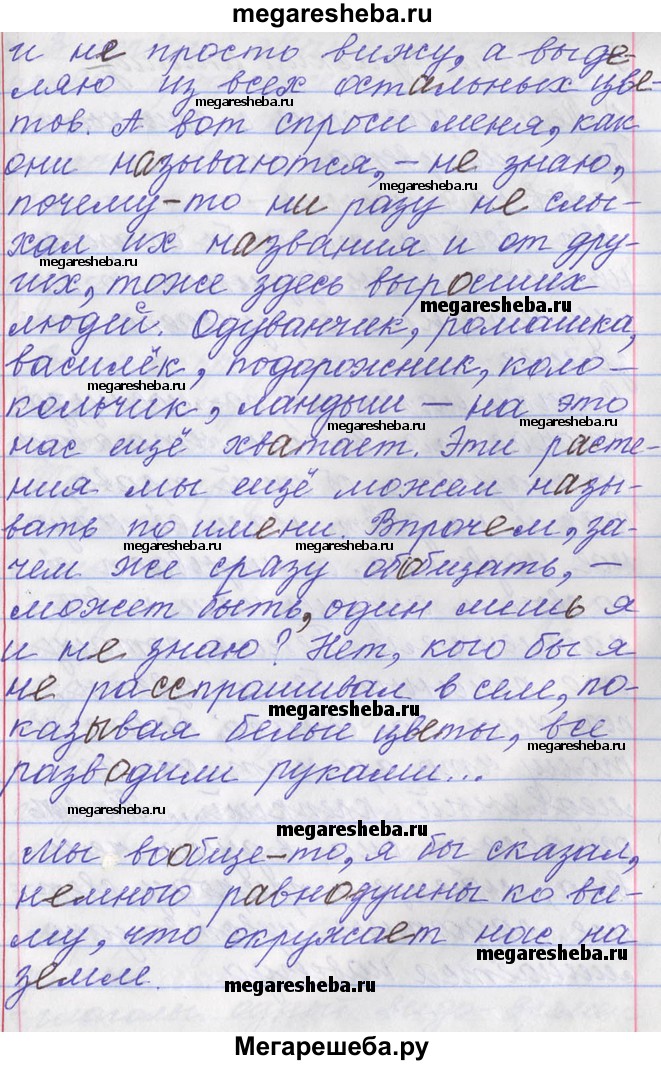 megaresheba.ru
и не просто вижу, а выде-
ляю из всех остальных цве
megaresheba.ru
тов. А вот спроси меня, как
они называются, – не знаю,
megaresheba.ru
почему-то ни разу не слы-
хал их названия и от дру-
megaresheba.ru
гих, тоже здесь выросших
megaresheba.ru
людей. Одуванчик, ромашка,
василёк, подорожник, коло-
megaresheba.ru
кольчик, ландыш – на это
megaresheba.ru
нас ещё хватает. Эти расте-
ния мы ещё можем назы-
вать по имени. Впрочем, за-
megaresheba.ru megaresheba.ru
чем же сразу обобщать, –
может быть, один лишь я
и не знаю? Нет, кого бы я
не расспрашивал в селе, по-
megaresheba.ru
казывая белые цветы, все
megaresheba.ru
разводили руками...
megaresheba.ru
megaresheba.ru
Мы вообще-то, я бы сказал,
немного равнодушны ко вс-
му, что окружает нас на
megaresheba.ru
земле.
megaresheba.ru
Мегарешеба.ру